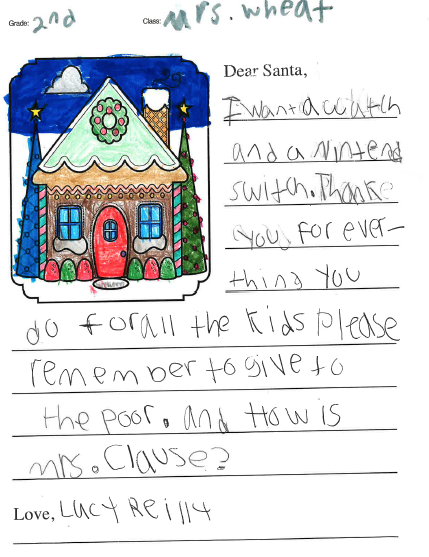 Grade: 2nd Class: Mrs. wheat
Dear Santa,
I want a watch
and a Nintend
switch. Thanke
you for ever-
thing you
do for all the kids please
remember to give to
the poor. and How is
mrs. Clause?
Love, Lucy Reilly